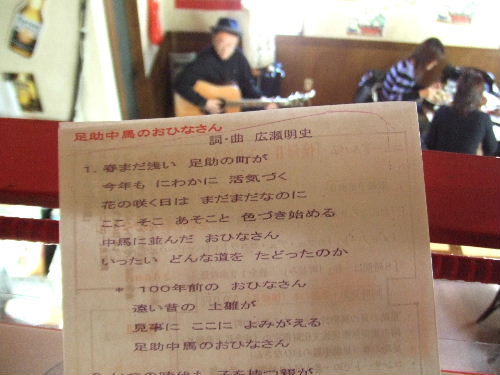 足助中馬のおひなさん
詞・曲 広瀬明史
1. 春まだ浅い 足助の町が
今年も にわかに 活気づく
花の咲く日は まだまだなのに
ここ そこ あそこと 色づき始める
中馬に並んだ おひなさん
いったい どんな道を たどったのか
* 100年前の おひなさん
遠い昔の 土雛が
見事に ここに よみがえる
足助中馬のおひなさん
の時代も 子を持つ親が